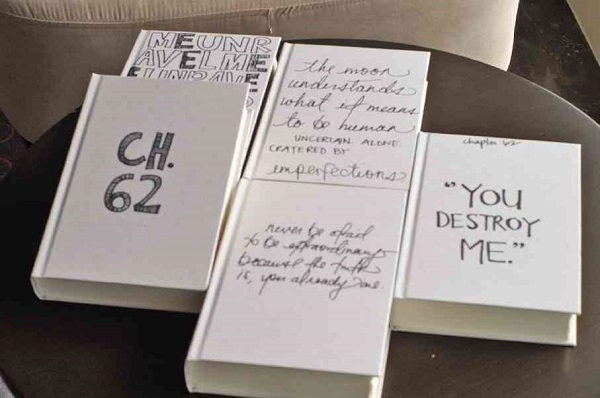 MEUNR
AVELME
EUNRAVE
the moon
understands
what it means
to be human
UNCERTAIN. ALONE.
CRATERED BY
imperfections
CH.
62
chapter 62
"YOU
DESTROY
ME."
never be afraid
to be extraordinary
because the truth
is, you already are.